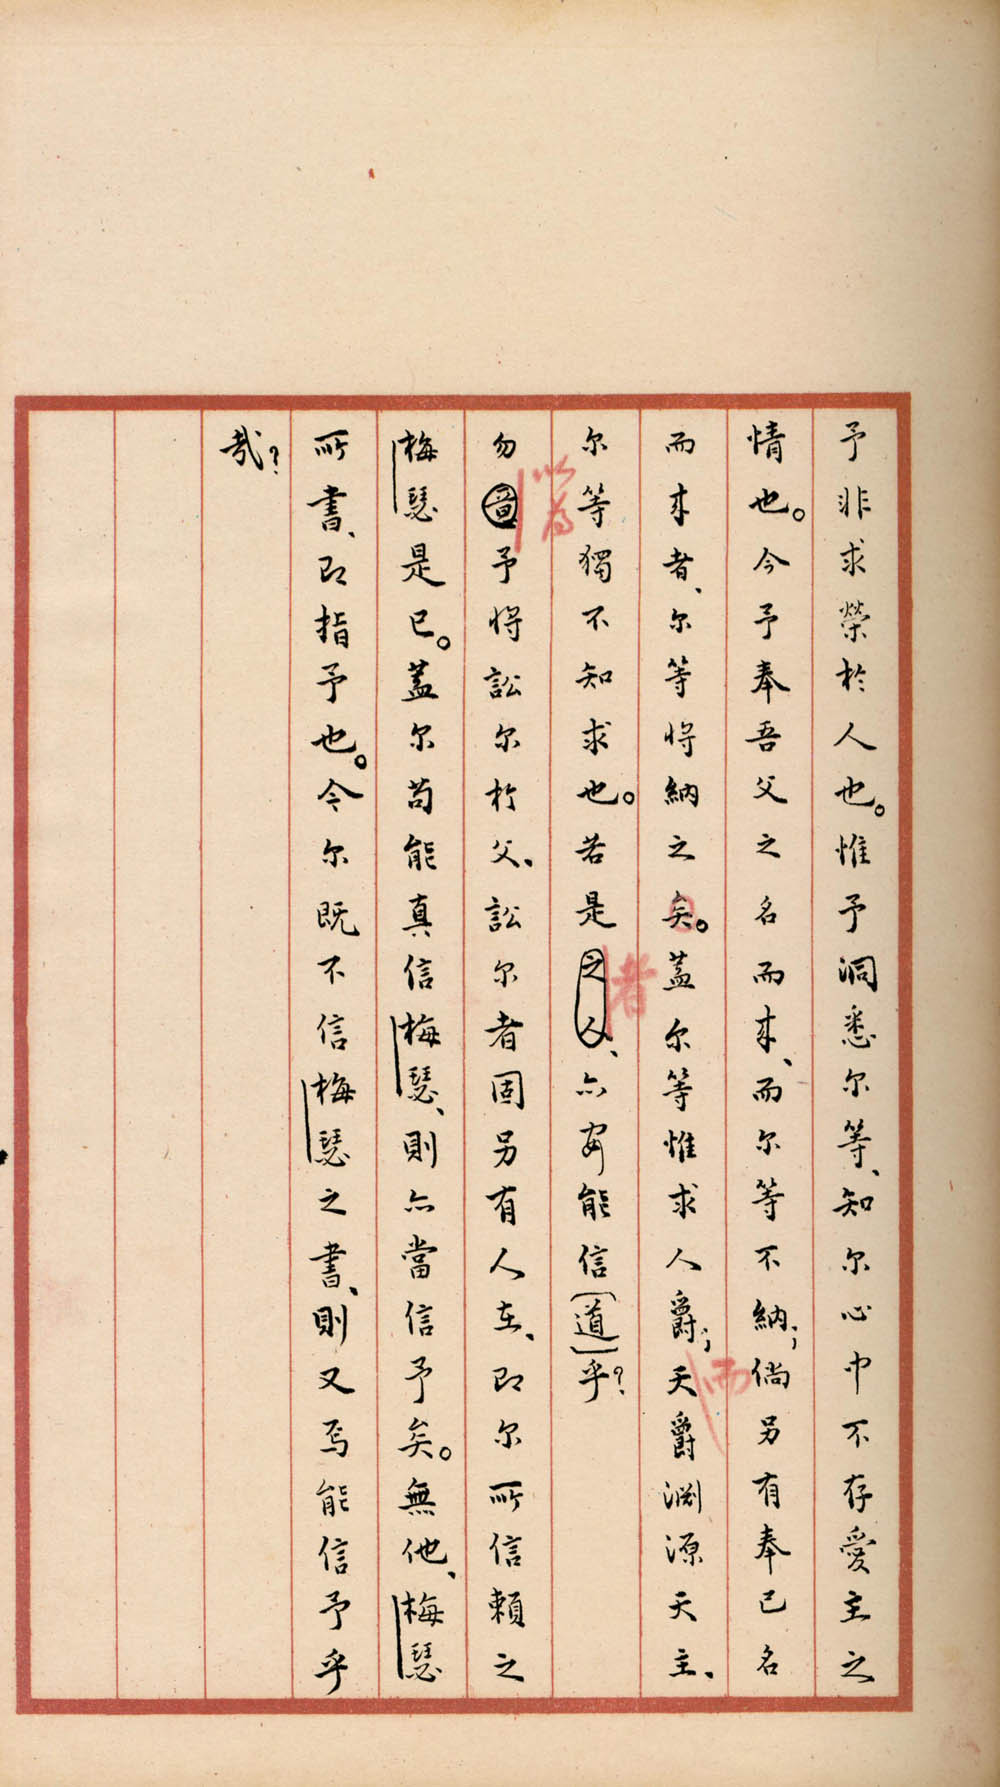 予非求榮於人也。惟予洞悉尔等、知尔心中不存愛主之
情也。今予奉吾父之名而来、而尔等不納；倘另有奉己名
而来者、尔等將納之矣。蓋尔等惟求人爵；而天爵淵源天主、
尔等獨不知求也。若是之人者、亦安能信（道）乎？
勿圖以為予將訟尔於父、訟尔者固另有人在、即尔所信賴之
梅瑟是已。蓋尔苟能真信梅瑟、則亦當信予矣。無他、梅瑟
所書、即指予也。今尔既不信梅瑟之書、則又焉能信予乎
哉？